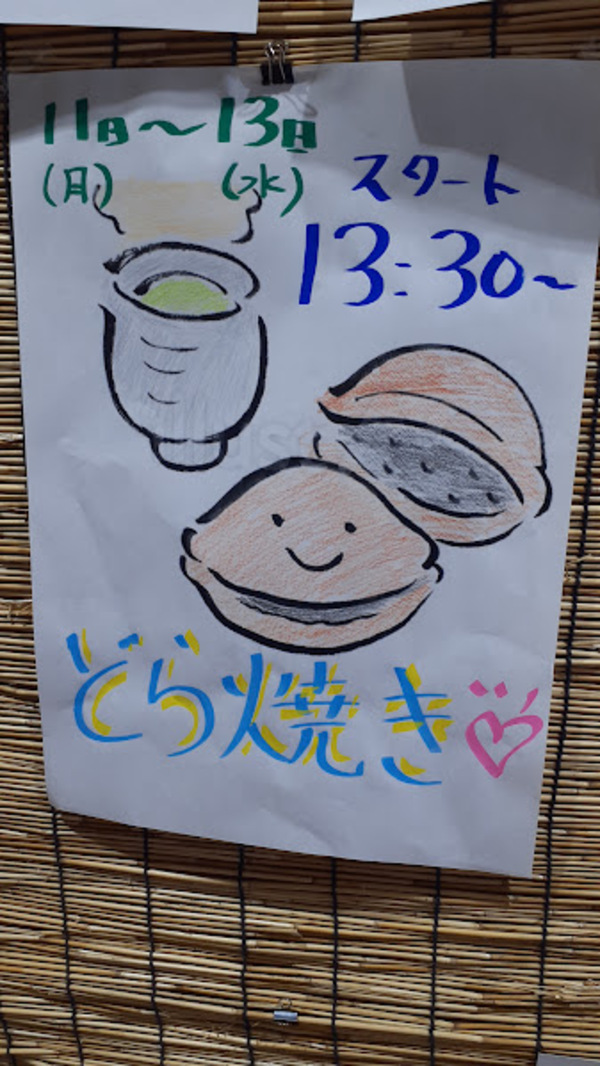 11日～13日
(月) (水)
スタート
13:30～
どら焼き